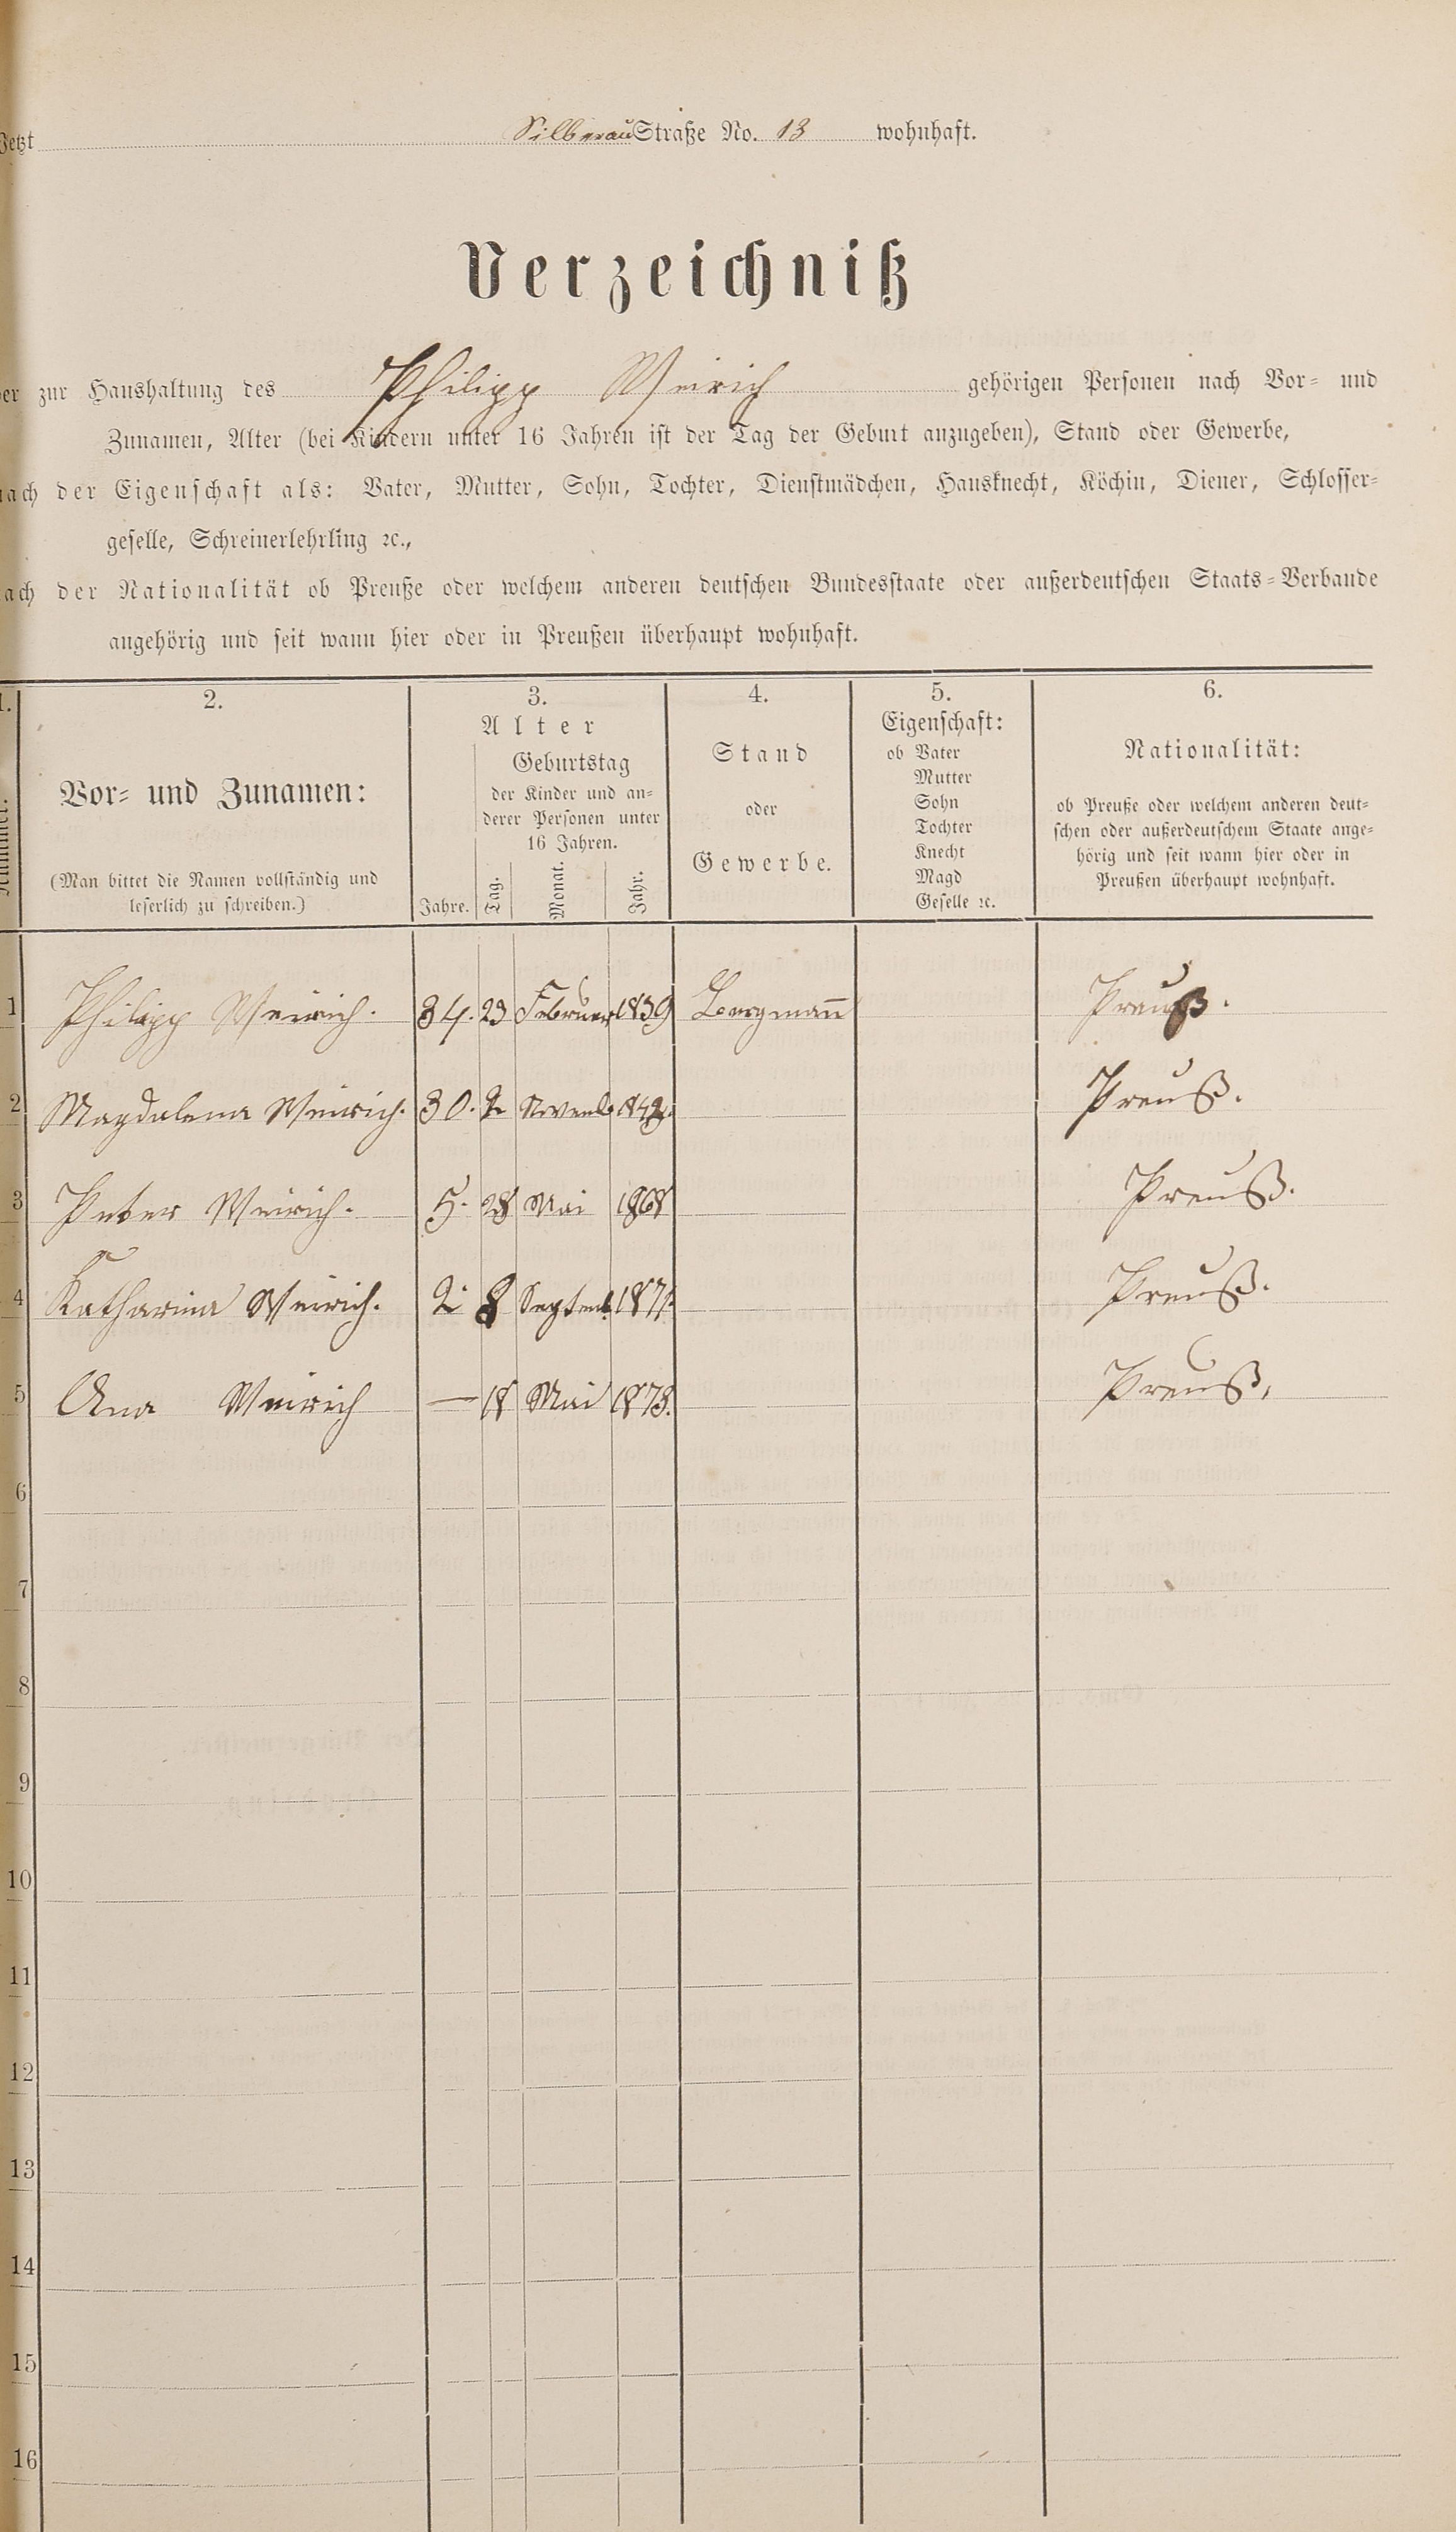 Jetzt Silberau Straße No. 13 wohnhaft.
Verzeichniß
der zur Haushaltung des Philipp Weirich gehörigen Personen nach Vor- und
Zunamen, Alter (bei Kindern unter 16 Jahren ist der Tag der Geburt anzugeben), Stand oder Gewerbe,
nach der Eigenschaft als: Vater, Mutter, Sohn, Tochter, Dienstmädchen, Hausknecht, Köchin, Diener, Schlosser-
geselle, Schreinerlehrling ꝛc.,
nach der Nationalität ob Preuße oder welchem anderen deutschen Bundesstaate oder außerdeutschen Staats-Verbande
angehörig und seit wann hier oder in Preußen überhaupt wohnhaft.
1.
Nummer.
2.
Vor- und Zunamen:
(Man bittet die Namen vollständig und
leserlich zu schreiben.)
3.
Alter
Geburtstag
der Kinder und an-
derer Personen unter
16 Jahren.
Jahre. Tag. Monat. Jahr.
4.
Stand
oder
Gewerbe.
5.
Eigenschaft:
ob Vater
Mutter
Sohn
Tochter
Knecht
Magd
Geselle ꝛc.
6.
Nationalität:
ob Preuße oder welchem anderen deut-
schen oder außerdeutschem Staate ange-
hörig und seit wann hier oder in
Preußen überhaupt wohnhaft.
1 Philipp Weirich. 34. 23 Februar 1839 Bergmann Preuß.
2 Magdalena Weirich. 30. 2 Novemb. 1842. Preuß.
3 Peter Weirich. 5. 28 Mai 1868 Preuß.
4 Katharina Weirich. 2. 8 Septemb. 1871. Preuß.
5 Ana Weirich — 18 Mai 1873. Preuß,
6
7
8
9
10
11
12
13
14
15
16